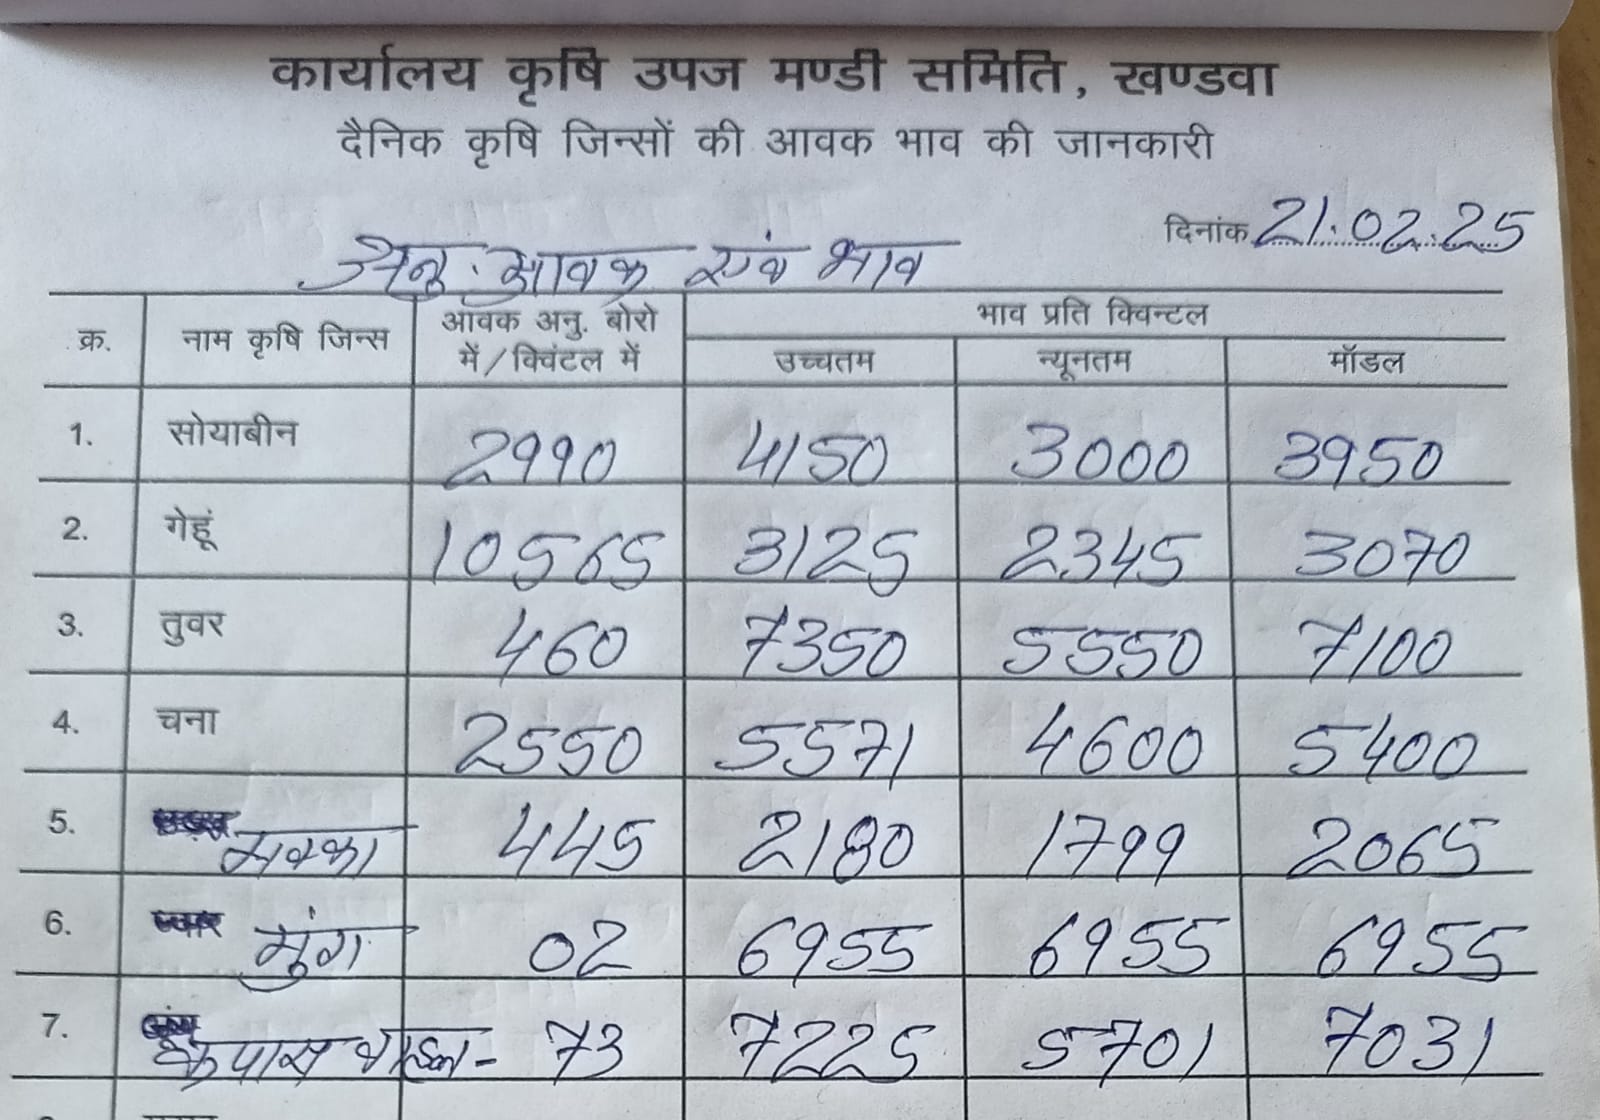 कार्यालय कृषि उपज मण्डी समिति, खण्डवा
दैनिक कृषि जिन्सों की आवक भाव की जानकारी
दिनांक 21.02.25
अनु. आवक एवं भाव
क्र. नाम कृषि जिन्स आवक अनु. बोरो में/क्विंटल में भाव प्रति क्विन्टल
उच्चतम न्यूनतम मॉडल
1. सोयाबीन 2990 4150 3000 3950
2. गेहूं 10565 3125 2345 3070
3. तुवर 460 7350 5550 7100
4. चना 2550 5571 4600 5400
5. मक्का 445 2180 1799 2065
6. मुंग 02 6955 6955 6955
7. कपास वाहन - 73 7225 5701 7031